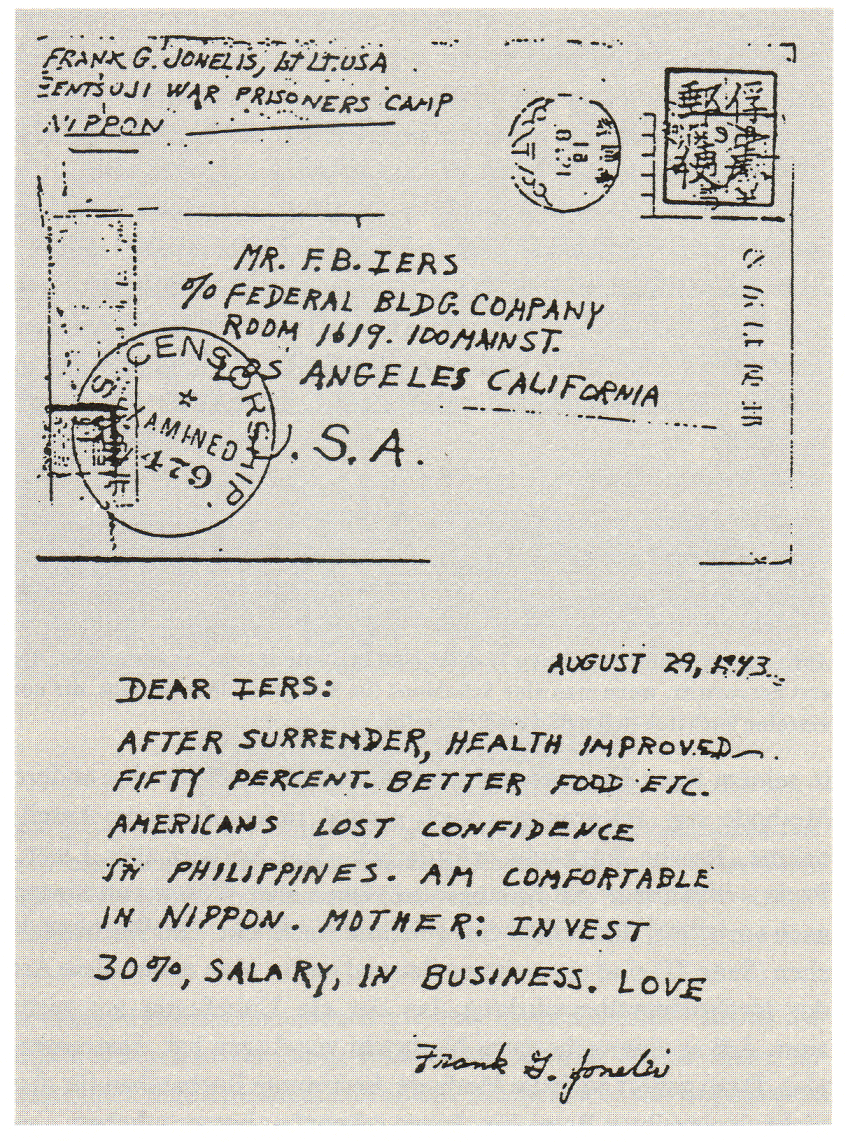 FRANK G. JONELIS, 1st LT. USA
ZENTSUJI WAR PRISONERS CAMP
NIPPON
MR. F.B. IERS
% FEDERAL BLDG. COMPANY
ROOM 1619. 100 MAIN ST.
LOS ANGELES CALIFORNIA
U.S.A.
U.S. CENSORSHIP
EXAMINED
AUGUST 29, 1943
DEAR IERS:
AFTER SURRENDER, HEALTH IMPROVED
FIFTY PERCENT. BETTER FOOD ETC.
AMERICANS LOST CONFIDENCE
IN PHILIPPINES. AM COMFORTABLE
IN NIPPON. MOTHER: INVEST
30%, SALARY, IN BUSINESS. LOVE
Frank G. Jonelis